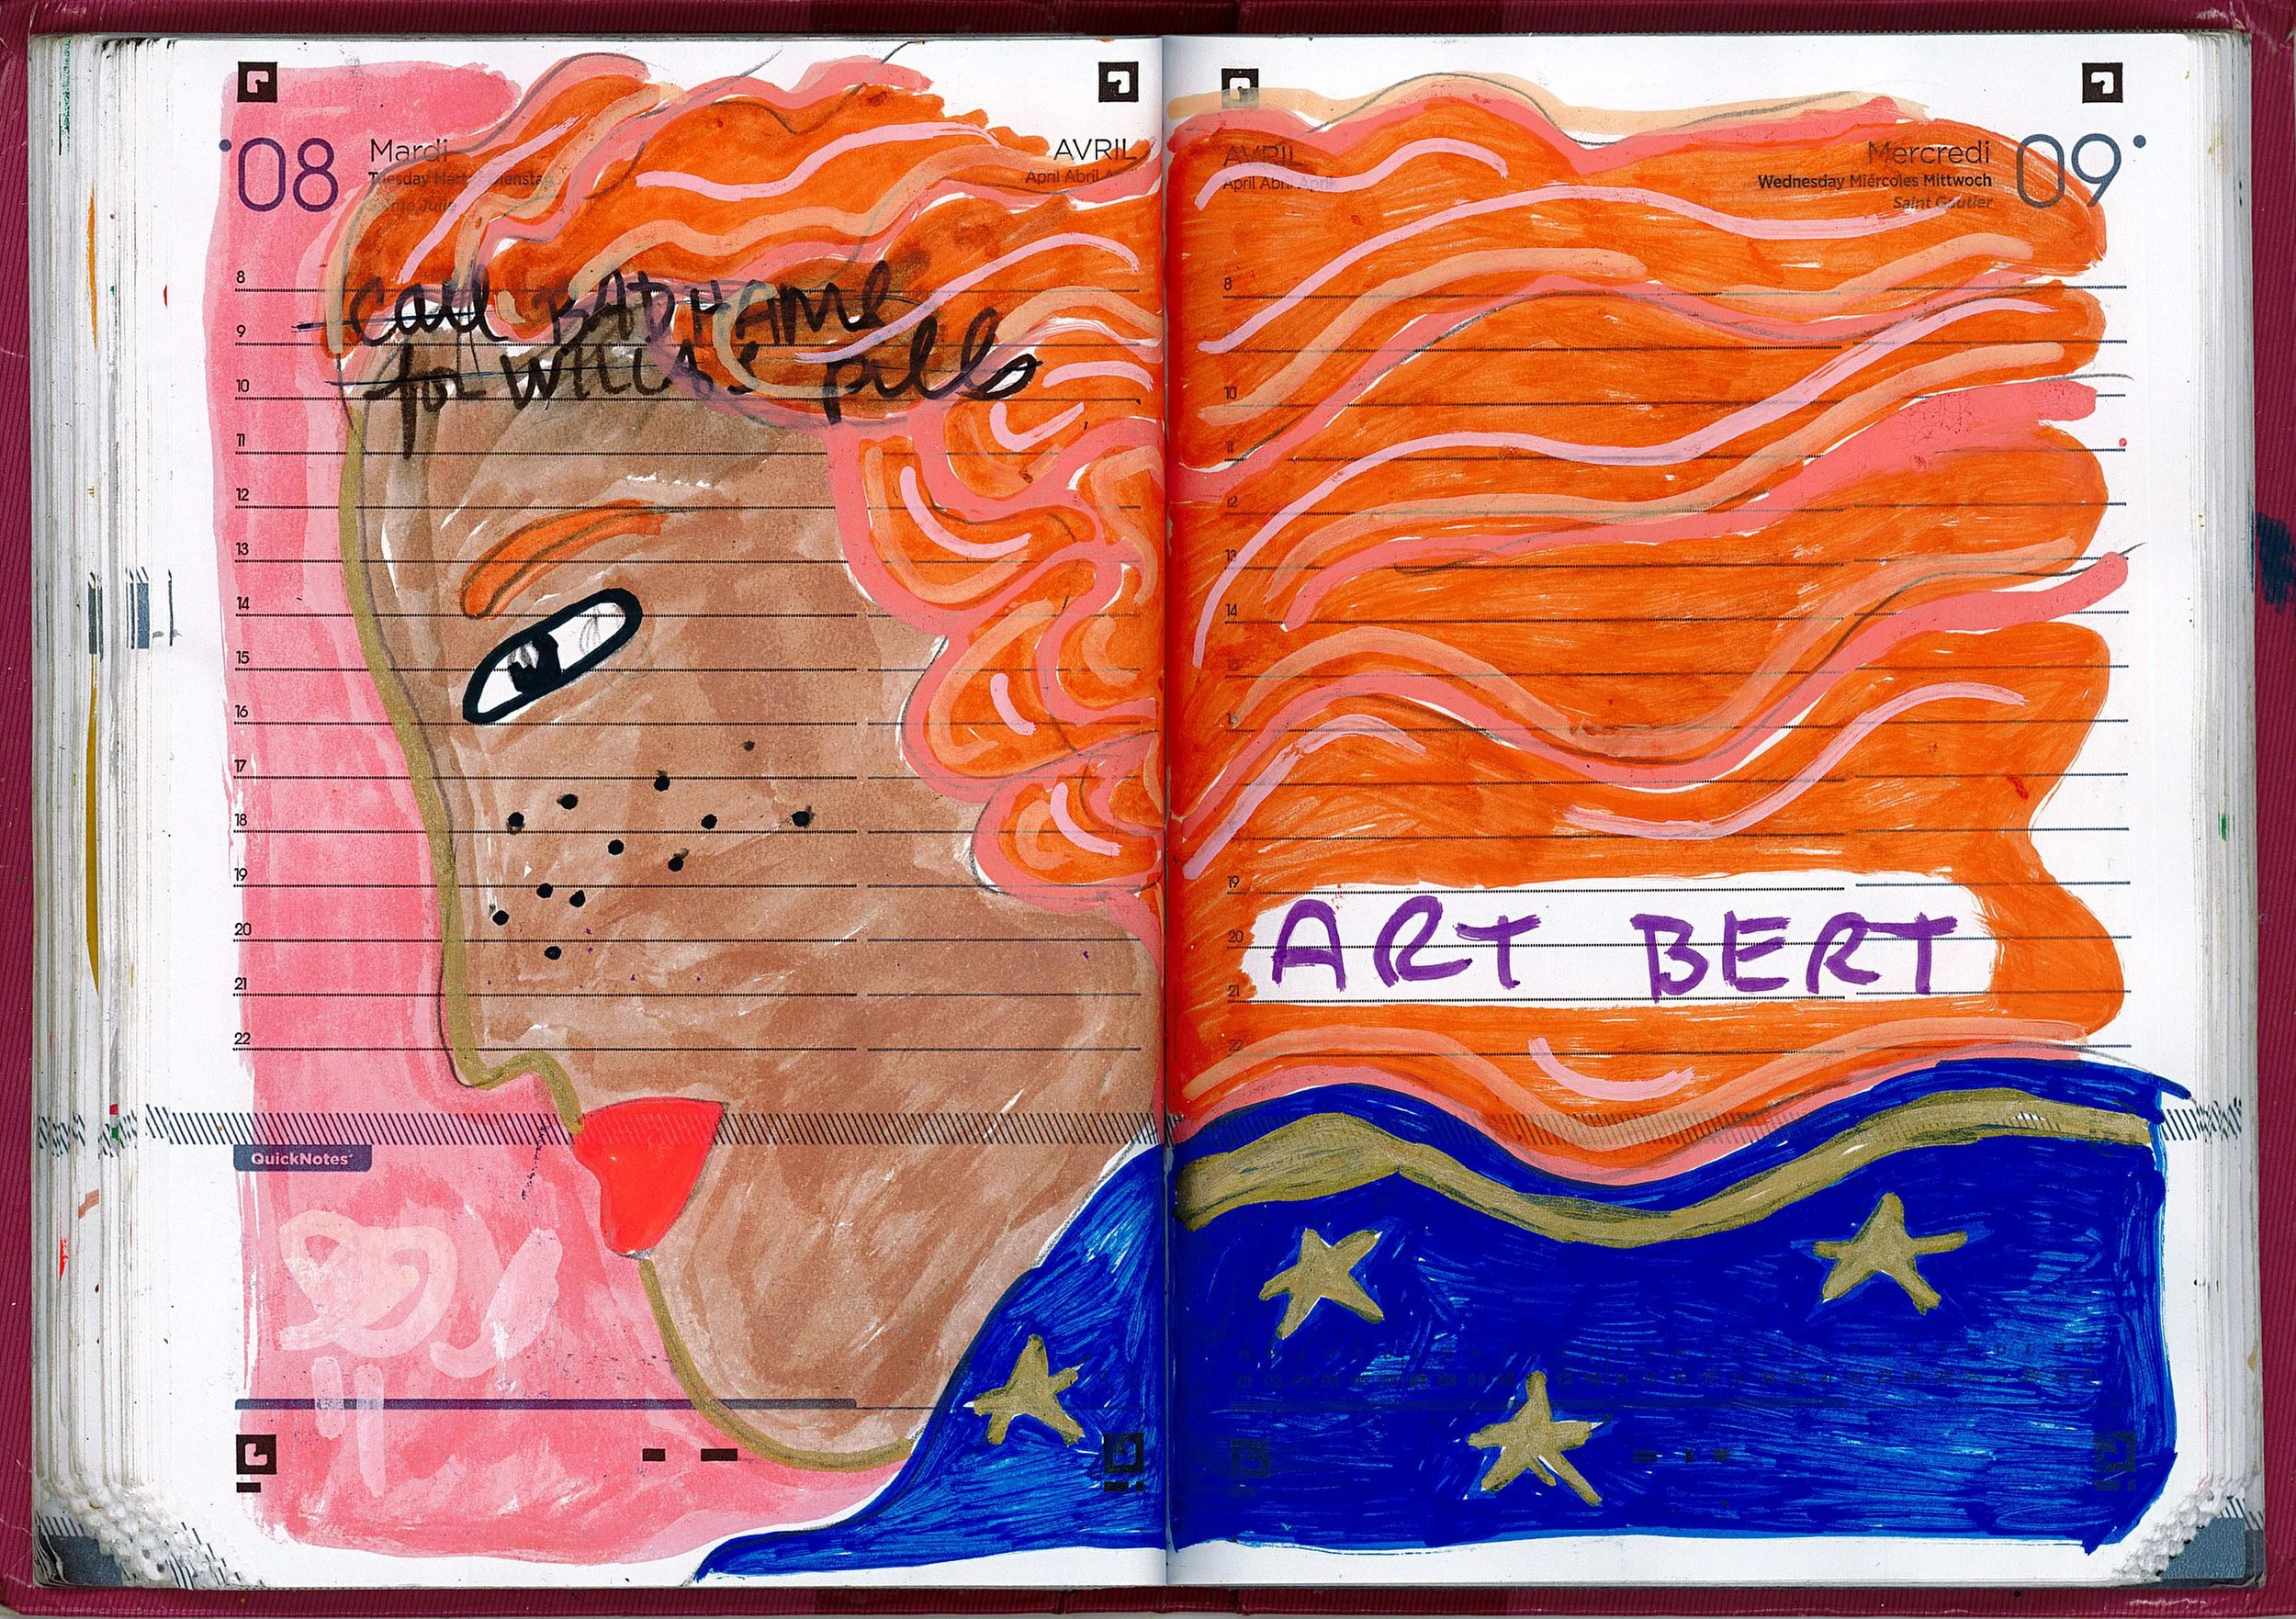 08 Mardi
Tuesday Martes Dienstag
Sainte Julie
AVRIL
April Abril
call BADHAMe
for pills
8
9
10
11
12
13
14
15
16
17
18
19
20
21
22
QuickNotes
AVRIL
April Abril April
Mercredi 09
Wednesday Miércoles Mittwoch
Saint Gautier
8
10
11
12
13
14
19
20
21
22
ART BERT